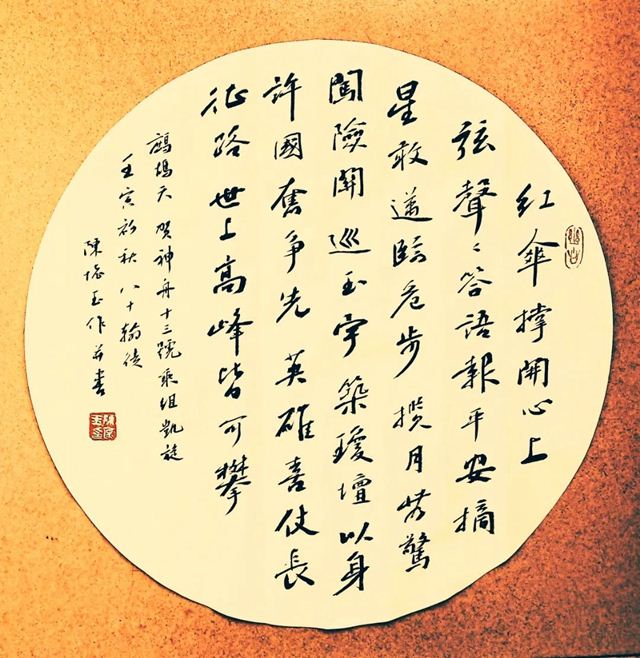 紅傘撑開心上
弦聲〻答語報平安摘
星敢邁臨危步攬月驚
闖險關巡玉宇築瓊壇以身
許國奮争先英雄喜仗長
征路世上高峰皆可攀
鷓鴣天賀神舟十三號乘組凱旋
壬寅初秋八十翰徒
陳玉作并書